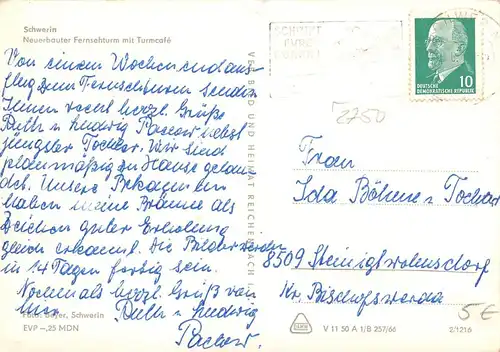 Schwerin
Neuerbauter Fernsehturm mit Turmcafé
Von einem Wochenendaus-
flug zum Fernsehturm senden
Ihnen recht herzl. Grüße
Ruth u. Ludwig Paccow nebst
jüngster Tochter. Wir sind
planmäßig zu Hause gelan-
det. Unsere Bekannten
haben meine Bräune als
Zeichen guter Erholung
gleich erkannt. Die Bilder werden
in 14 Tagen fertig sein.
Nochmals herzl. Gruß von
Ihren Ruth u. Ludwig
Paccow.
Foto: Beyer, Schwerin
EVP –,25 MDN
VERLAG BILD UND HEIMAT REICHENBACH
SCHWERIN
DEUTSCHE
DEMOKRATISCHE REPUBLIK
10
2750
Frau
Ida Böhme u. Tochter
8509 Steinigtwolmsdorf
Kr. Bischofswerda
5 €
V 11 50 A 1/B 257/66
2/1216